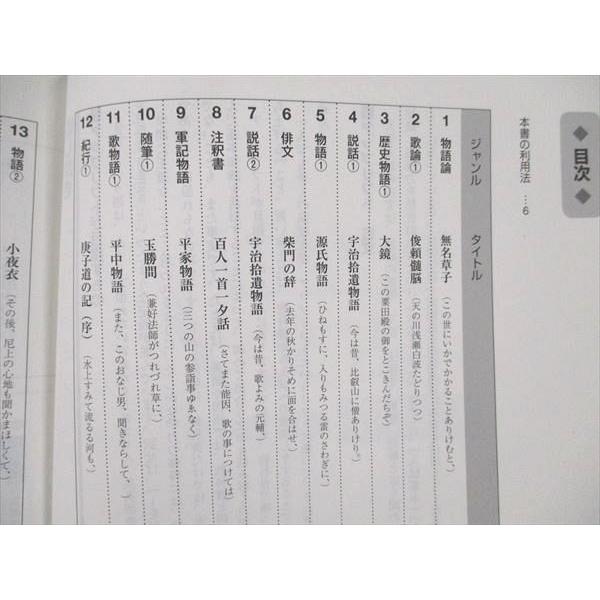 ◆ 目次 ◆
本書の利用法 …6
ジャンル タイトル
1 物語論 無名草子（この世にいかでかかることありけむと、）
2 歌論① 俊頼髄脳（天の川浅瀬白波たどりつつ）
3 歴史物語① 大鏡（この粟田殿の御をとこきんだちぞ）
4 説話① 宇治拾遺物語（今は昔、比叡山に僧ありけり。）
5 物語① 源氏物語（ひねもすに、入りもみつる雷のさわぎに、）
6 俳文 柴門の辞（去年の秋かりそめに面を合はせ、）
7 説話② 宇治拾遺物語（今は昔、歌よみの元輔、）
8 注釈書 百人一首一夕話（さてまた能因、歌の事につけては）
9 軍記物語 平家物語（三つの山の参詣事ゆゑなく）
10 随筆① 玉勝間（兼好法師がつれづれ草に、）
11 歌物語① 平中物語（また、このおなじ男、聞きならして、）
12 紀行① 庚子道の記（序）（氷上すみて流るる河も、）
13 物語② 小夜衣（その後、尼上の心地も聞かまほしくて、